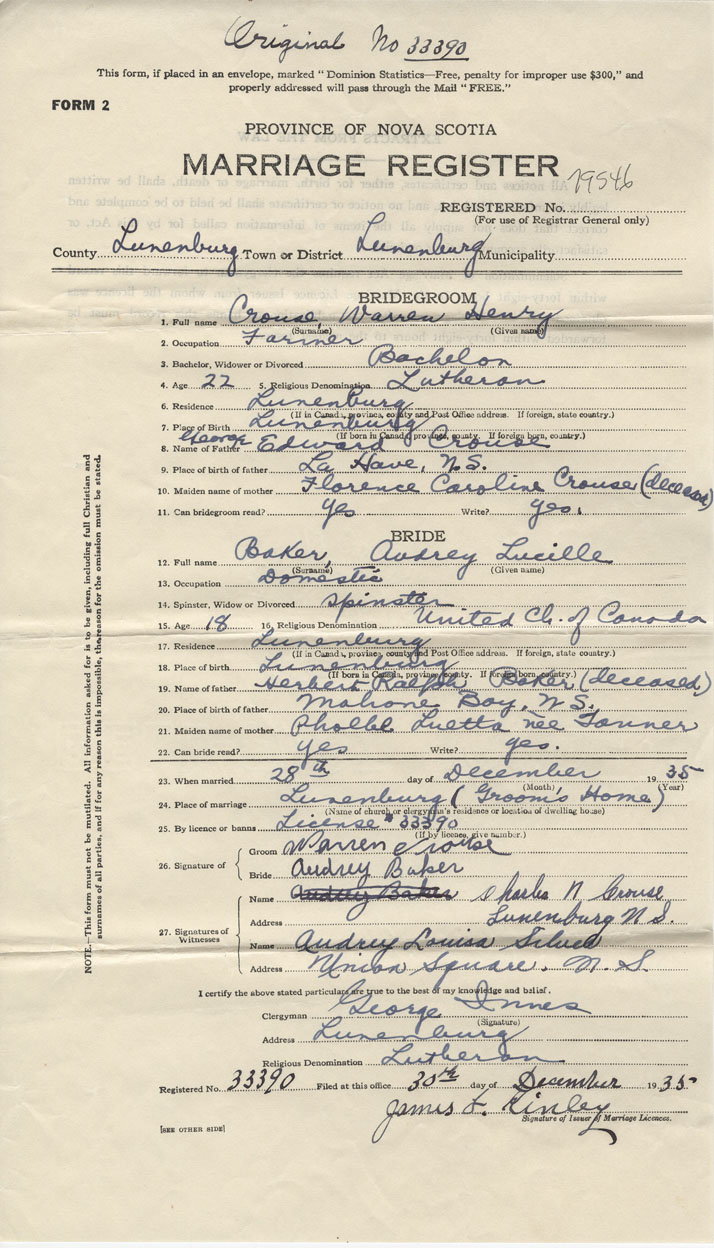 Original No 33390
This form, if placed in an envelope, marked "Dominion Statistics—Free, penalty for improper use $300," and
properly addressed will pass through the Mail "FREE."
FORM 2
PROVINCE OF NOVA SCOTIA
MARRIAGE REGISTER 79546
REGISTERED No.
(For use of Registrar General only)
County Lunenburg Town or District Lunenburg Municipality
BRIDEGROOM
1. Full name Crouse, Warren Henry
(Surname) (Given name)
2. Occupation Farmer
3. Bachelor, Widower or Divorced Bachelor
4. Age 22 5. Religious Denomination Lutheran
6. Residence Lunenburg
(If in Canada, province, county and Post Office address. If foreign, state country.)
7. Place of Birth Lunenburg
(If born in Canada, province, county. If foreign born, country.)
8. Name of Father George Edward Crouse
9. Place of birth of father La Have, N.S.
10. Maiden name of mother Florence Caroline Crouse (deceased)
11. Can bridegroom read? yes Write? yes.
BRIDE
12. Full name Baker, Audrey Lucille
(Surname) (Given name)
13. Occupation Domestic
14. Spinster, Widow or Divorced Spinster
15. Age 18 16. Religious Denomination United Ch. of Canada
17. Residence Lunenburg
(If in Canada, province, county and Post Office address. If foreign, state country.)
18. Place of birth Lunenburg
(If born in Canada, province, county. If foreign born, country.)
19. Name of father Herbert Ralph Baker (deceased)
20. Place of birth of father Mahone Bay, N.S.
21. Maiden name of mother Phoebe Luetta nee Tanner
22. Can bride read? yes Write? yes.
23. When married 28th day of December 1935
(Month) (Year)
24. Place of marriage Lunenburg (Groom's Home)
(Name of church or clergyman's residence or location of dwelling house)
25. By licence or banns License # 33390
(If by licence, give number.)
26. Signature of Groom Warren Crouse
Bride Audrey Baker
27. Signatures of Witnesses Name Audrey Baker Charles N Crouse
Address Lunenburg N.S.
Name Audrey Louisa Silver
Address Union Square, N.S.
I certify the above stated particulars are true to the best of my knowledge and belief.
Clergyman George Innes
(Signature)
Address Lunenburg
Religious Denomination Lutheran
Registered No. 33390 Filed at this office 30th day of December 1935
James F. Kinley
Signature of Issuer of Marriage Licences.
[SEE OTHER SIDE]
NOTE.—This form must not be mutilated. All information asked for is to be given, including full Christian and
surnames of all parties, and if for any reason this is impossible, the reason for the omission must be stated.